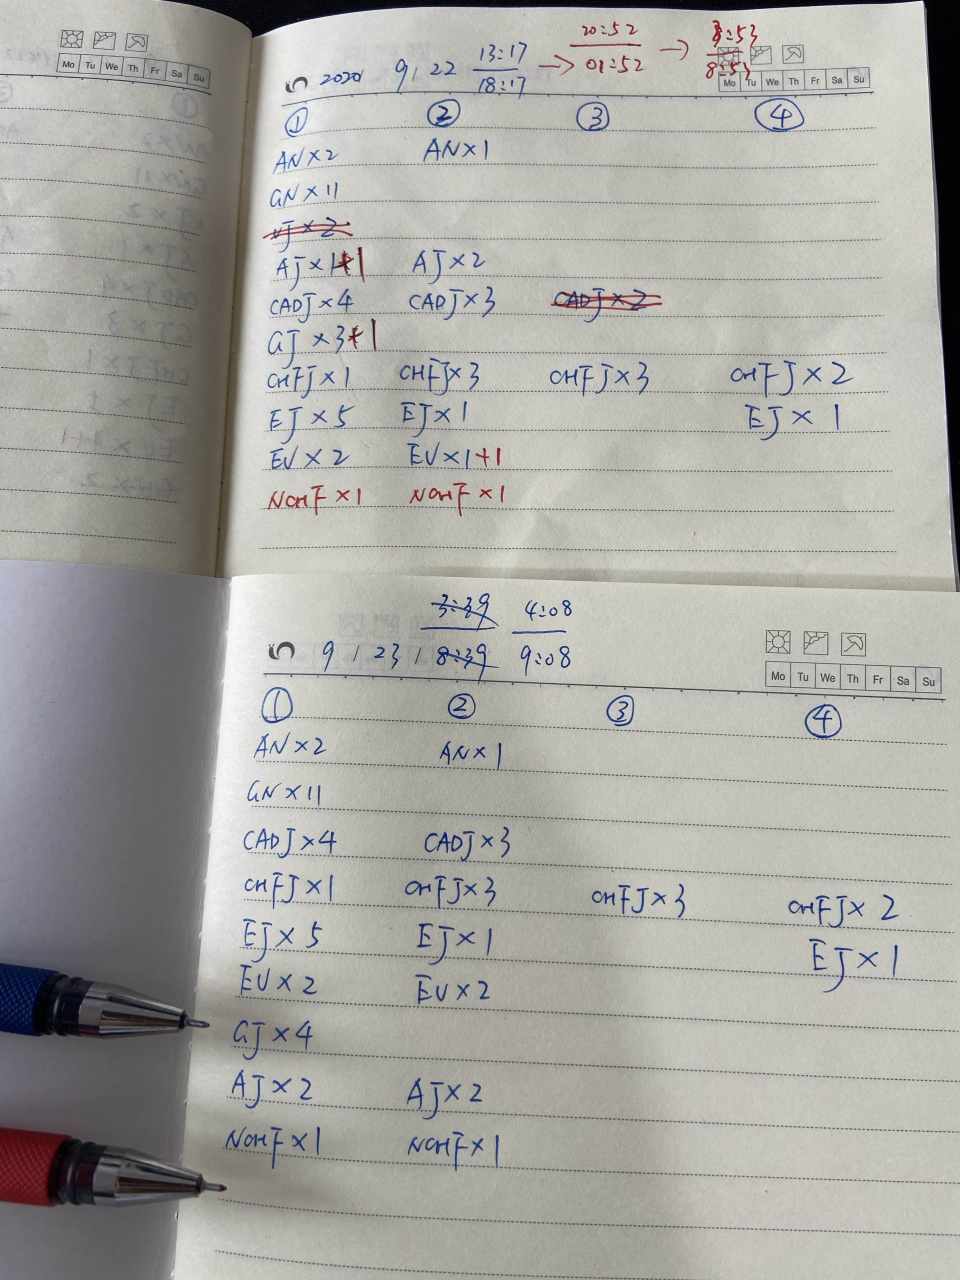 Mo Tu We Th Fr Sa Su
2020 9 / 22 13:17 / 18:17 → 20:52 / 01:52 → 3:53 / 8:53
Mo Tu We Th Fr Sa Su
① ② ③ ④
AN×2 AN×1
GN×11
AJ×1+1 AJ×2
CADJ×4 CADJ×3 CADJ×2
GJ×3+1
CHFJ×1 CHFJ×3 CHFJ×3 CHFJ×2
EJ×5 EJ×1 EJ×1
EV×2 EV×1+1
NCHF×1 NCHF×1
9 / 23 / 3:39 / 8:39 4:08 / 9:08
Mo Tu We Th Fr Sa Su
① ② ③ ④
AN×2 AN×1
GN×11
CADJ×4 CADJ×3
CHFJ×1 CHFJ×3 CHFJ×3 CHFJ×2
EJ×5 EJ×1 EJ×1
EV×2 EV×2
GJ×4
AJ×2 AJ×2
NCHF×1 NCHF×1